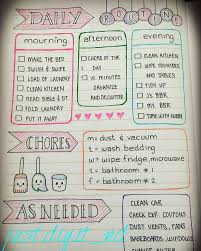 DAILY ROUTINE
mourning
MAKE THE BED
SWISH & SWIPE
LOAD OF LAUNDRY
CLEAN KITCHEN
READ BIBLE & DT
FOLD LAUNDRY
DINNER
afternoon
CHORE OF THE
DAY
15 MINUTES
ORGANIZE
AND DECLUTTER
evening
CLEAN KITCHEN
AND TABLES
TIDY UP
MJ. BBR
MR. BBR
TIME WITH HUBBY
CHORES
m = dust & vacuum
t = wash bedding
w = wipe fridge, microwave
t = bathroom # 1
f = bathroom # 2
AS NEEDED
CLEAN CAR
CHECK EXP. COUPONS
DUST VENTS, FANS
BASEBOARDS, WINDOWS